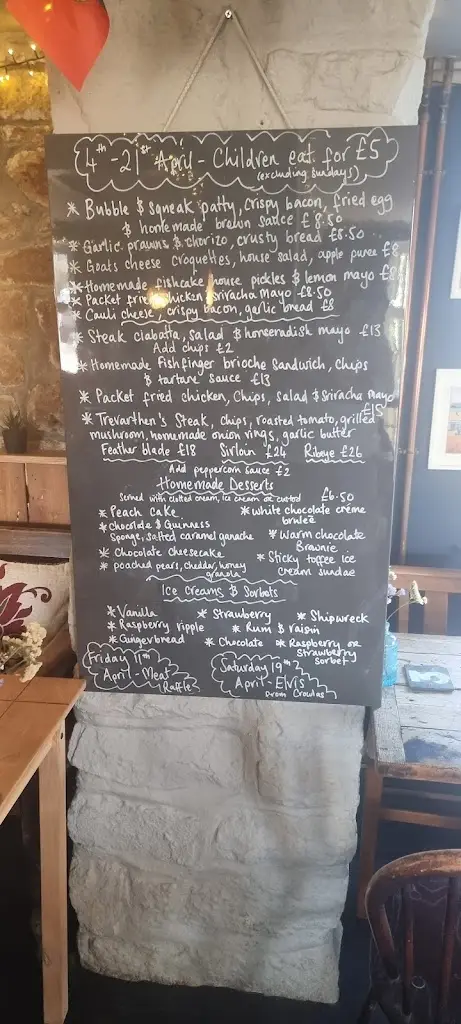 4th - 21st April - Children eat for £5
(excluding sundays)
* Bubble & squeak patty, crispy bacon, fried egg
& homemade brown sauce £8.50
* Garlic prawns & chorizo, crusty bread £8.50
* Goats cheese croquettes, house salad, apple puree £8
* Homemade fishcake house pickles & lemon mayo £8
* Packet fried chicken sriracha mayo £8.50
* Cauli cheese, crispy bacon, garlic bread £8
* Steak ciabatta, salad & horseradish mayo £13
Add chips £2
* Homemade Fishfinger brioche sandwich, chips
& tartare sauce £13
* Packet fried chicken, chips, salad & sriracha mayo
£15
* Trevarthen's Steak, chips, roasted tomato, grilled
mushroom, homemade onion rings, garlic butter
Feather blade £18 Sirloin £24 Ribeye £26
Add peppercorn sauce £2
Homemade Desserts
Served with clotted cream, ice cream or custard £6.50
* Peach cake
* Chocolate & Guinness
Sponge, salted caramel ganache
* Chocolate cheesecake
* poached pears, cheddar, honey
granola
* White chocolate crème
brulee
* Warm chocolate
Brownie
* Sticky toffee ice
cream sundae
Ice Creams & Sorbets
* Vanilla * Strawberry * Shipwreck
* Raspberry ripple * Rum & raisin
* Gingerbread * Chocolate * Raspberry or
Strawberry
Sorbet
Friday 11th
April - Meat
Raffle
Saturday 19th
April - ELVIS